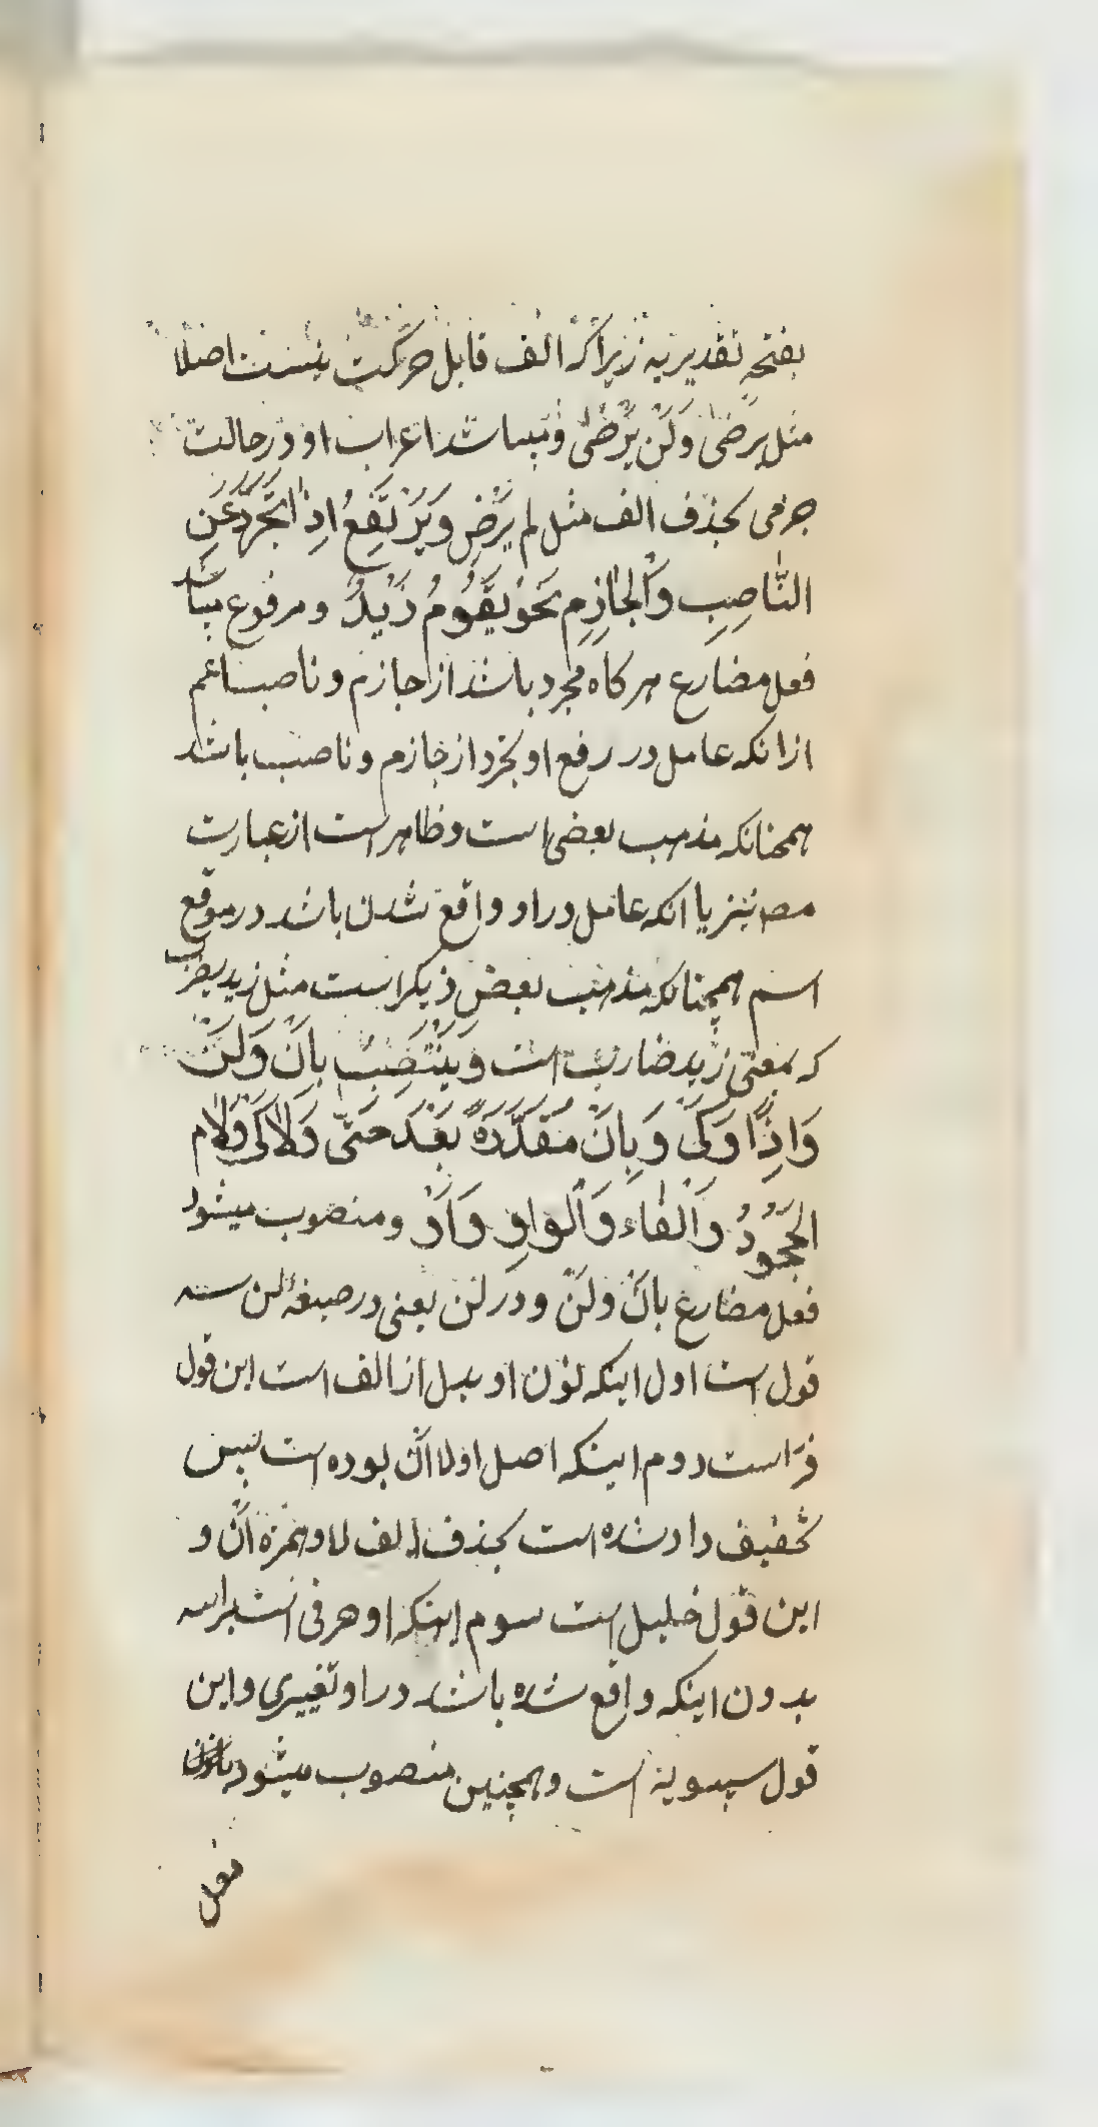 بفتحه تقدیریه زیرا که الف قابل حرکت نیست اصلا
مثل یَرضیٰ وَلَنْ یَرْضیٰ و میباشد اعراب او در حالت
جزمی بحذف الف مثل لم یَرْضَ وَیَرْتَفِعُ اِذٰا تَجَرَّدَ عَنِ
النّٰاصِبِ وَالْجٰازِمِ نَحْوُ یَقُومُ زَیْدٌ و مرفوع میباشد
فعل مضارع هرکاه مجرد باشد از جازم و ناصب اعم
از انکه عامل در رفع او تجرد از جازم و ناصب باشد
همچنانکه مذهب بعضی است و ظاهر است از عبارت
مصه نیز یا انکه عامل در او واقع شدن باشد در موقع
اسم همچنانکه مذهب بعض دیکر است مثل زید یضرب
که بمعنی زید ضارب است وَیَنْتَصِبُ بِاَنْ وَلَنْ
وَاِذًا وَکَیْ وَبِاَنْ مُقَدَّرَةً بَعْدَ حَتّٰی وَلاٰمِ کَیْ وَلاٰمِ
الجُحُودُ وَالْفٰاءِ وَالْوٰاوِ وَاَوْ و منصوب میشود
فعل مضارع بان ولن و در لن یعنی در صیغهٔ لن سه
قول است اول اینکه نون او بدل از الف است این قول
فرّاست دوم اینکه اصل او لا اَنْ بوده است پس
تخفیف داده شده است بحذف الف لا و همزه اَنْ و
این قول خلیل است سوم اینکه او حرفی است براسه
بدون اینکه واقع شده باشد در او تغییری و این
قول سیبویه است و همچنین منصوب میشود
فعل